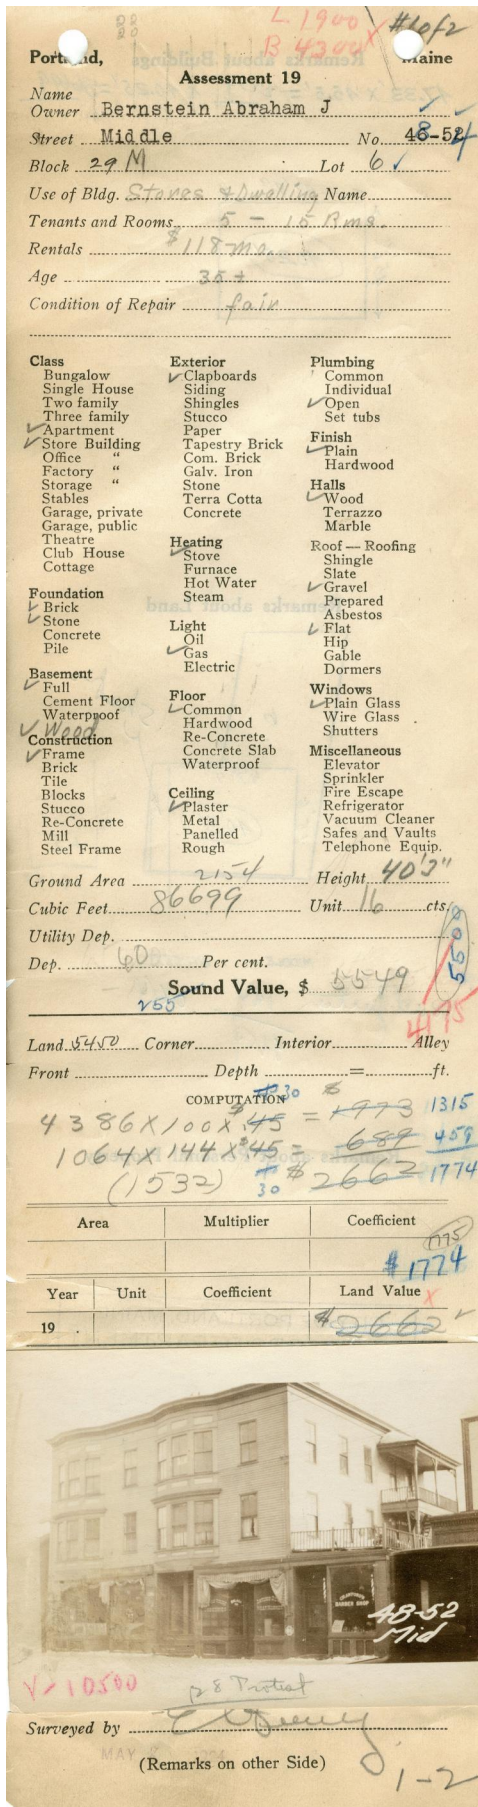 L. 1900
B 4300 X
#1 of 2
Portland, Maine
Assessment 19
Name
Owner Bernstein Abraham J
Street Middle No. 48-52
Block 29 M Lot 6 ✓
Use of Bldg. Stores & Dwelling Name
Tenants and Rooms 5 - 15 Rms.
Rentals $118 mo.
Age 35+
Condition of Repair fair
Class
Bungalow
Single House
Two family
Three family
✓ Apartment
✓ Store Building
Office "
Factory "
Storage "
Stables
Garage, private
Garage, public
Theatre
Club House
Cottage
Foundation
✓ Brick
✓ Stone
Concrete
Pile
Basement
✓ Full
Cement Floor
Waterproof
✓ Wood
Construction
✓ Frame
Brick
Tile
Blocks
Stucco
Re-Concrete
Mill
Steel Frame
Exterior
✓ Clapboards
Siding
Shingles
Stucco
Paper
Tapestry Brick
Com. Brick
Galv. Iron
Stone
Terra Cotta
Concrete
Heating
✓ Stove
Furnace
Hot Water
Steam
Light
Oil
✓ Gas
Electric
Floor
✓ Common
Hardwood
Re-Concrete
Concrete Slab
Waterproof
Ceiling
✓ Plaster
Metal
Panelled
Rough
Plumbing
Common
Individual
✓ Open
Set tubs
Finish
✓ Plain
Hardwood
Halls
✓ Wood
Terrazzo
Marble
Roof — Roofing
Shingle
Slate
✓ Gravel
Prepared
Asbestos
✓ Flat
Hip
Gable
Dormers
Windows
✓ Plain Glass
Wire Glass
Shutters
Miscellaneous
Elevator
Sprinkler
Fire Escape
Refrigerator
Vacuum Cleaner
Safes and Vaults
Telephone Equip.
Ground Area 2154 Height 40'3"
Cubic Feet 86699 Unit 16 cts.
Utility Dep.
5500
Dep. 60 Per cent.
Sound Value, $ 5549
255
4175
Land 5450 Corner Interior Alley
Front Depth = ft.
COMPUTATION
4386 X 100 X $45 $30 = $1973 1315
1064 X 144 X $45 = 689 459
(1532) $30 $2662 1774
Area Multiplier Coefficient
1775
$1774
Year Unit Coefficient Land Value X
19 $2662 ✓
BARBER SHOP
48-52
Mid
V-10500
Surveyed by
(Remarks on other Side)
1-2